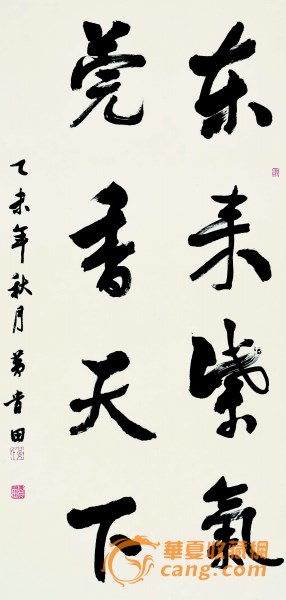 东来紫氣
莞香天下
乙未年秋月黄田
華夏收藏網
cang.com